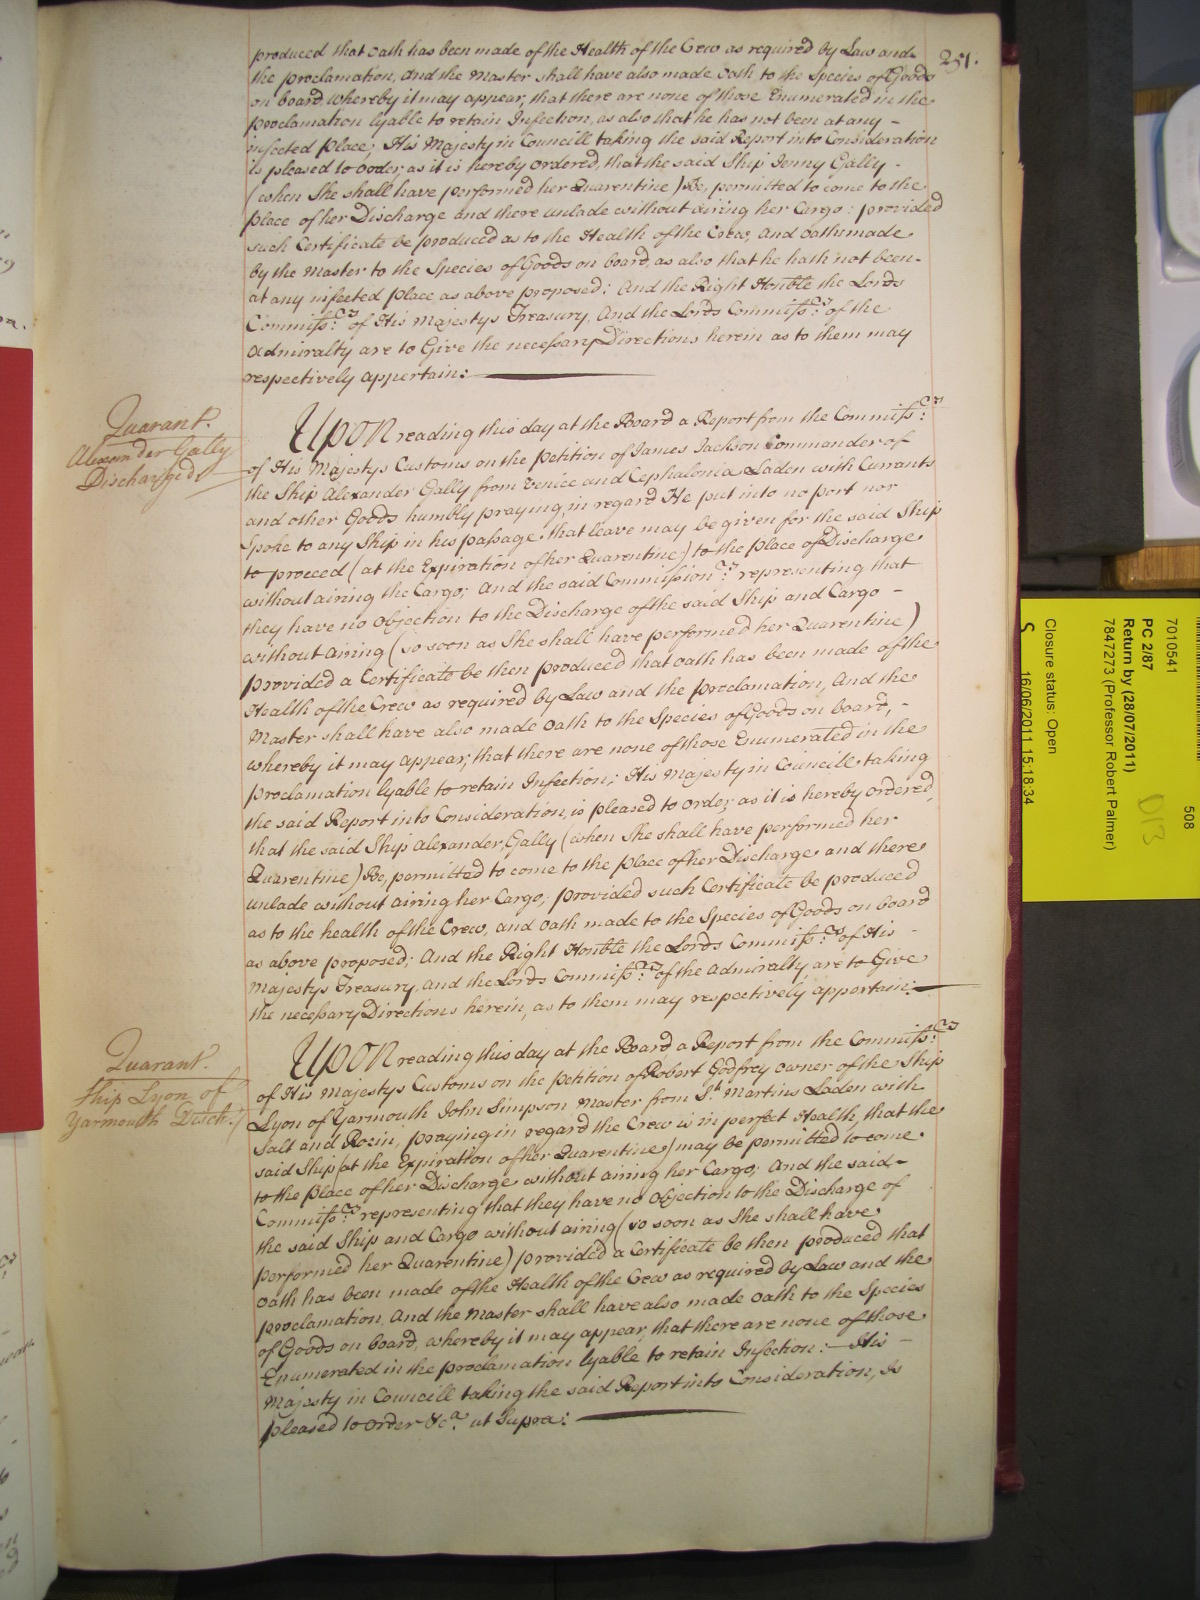 251.
produced that oath has been made of the Health of the Crew as required by Law and
the proclamation, And the Master shall have also made Oath to the Species of Goods
on board whereby it may appear, that there are none of those Enumerated in the
proclamation lyable to retain Infection, as also that he has not been at any -
infected place; His Majesty in Councill taking the said Report into Consideration
is pleased to order, as it is hereby ordered, that the said Ship Jenny Gally -
(when She shall have performed her Quarentine) Be, permitted to come to the
place of her Discharge and there unlade without airing her Cargo: provided
such Certificate be produced as to the Health of the Crew, and oath made
by the Master to the Species of Goods on board, as also that he hath not been -
at any infected Place as above proposed: And the Right Honble the Lords
Commissrs of His Majestys Treasury, And the Lords Commissrs of the
Admiralty are to Give the necessary Directions herein as to them may
respectively appertain:
Quarant.
Alexander Gally
Discharged
Upon reading this day at the Board a Report from the Commissrs
of His Majestys Customs on the Petition of James Jackson Commander of
the Ship Alexander Gally from Venice and Cephalonia Laden with Currants
and other Goods humbly praying, in regard He put into no port nor
Spoke to any Ship in his passage that leave may be given for the said Ship
to proceed (at the Expiration of her Quarentine) to the Place of Discharge
without airing the Cargo; And the said Commissionrs representing that
they have no Objection to the Discharge of the said Ship and Cargo -
without airing (so soon as She shall have performed her Quarentine)
provided a Certificate be then produced that oath has been made of the
Health of the Crew as required by Law and the proclamation, And the
Master shall have also made Oath to the Species of Goods on board, -
whereby it may appear, that there are none of those Enumerated in the
proclamation lyable to retain Infection; His Majesty in Councill taking
the said Report into Consideration, is pleased to order, as it is hereby ordered,
that the said Ship Alexander Gally (when She shall have performed her
Quarentine) Be, permitted to come to the place of her Discharge and there
unlade without airing her Cargo; provided such Certificate be produced
as to the health of the Crew, and oath made to the Species of Goods on board
as above proposed; And the Right Honble the Lords Commissrs of His -
Majestys Treasury, and the Lords Commissrs of the Admiralty are to Give
the necessary Directions herein, as to them may respectively appertain:
Quarant.
Ship Lyon of
Yarmouth Disch:
Upon reading this day at the Board a Report from the Commissrs
of His Majestys Customs on the Petition of Robert Godfrey owner of the Ship
Lyon of Yarmouth John Simpson Master from St Martins Laden with
Salt and Rosin, praying in regard the Crew is in perfect Health, that the
said Ship (at the Expiration of her Quarentine) may be permitted to come
to the Place of her Discharge without airing her Cargo; And the said -
Commissrs representing that they have no Objection to the Discharge of
the said Ship and Cargo without airing (so soon as She shall have
performed her Quarentine) provided a Certificate be then produced that
Oath has been made of the Health of the Crew as required by Law and the
proclamation, And the Master shall have also made Oath to the Species
of Goods on board, whereby it may appear, that there are none of those
Enumerated in the proclamation lyable to retain Infection: - His -
Majesty in Councill taking the said Report into Consideration, Is
pleased to order &ca ut Supra:
508
7010541
PC 2/87
Return by (28/07/2011)
7847273 (Professor Robert Palmer)
D13
Closure status: Open
S
16/06/2011 15:18:34